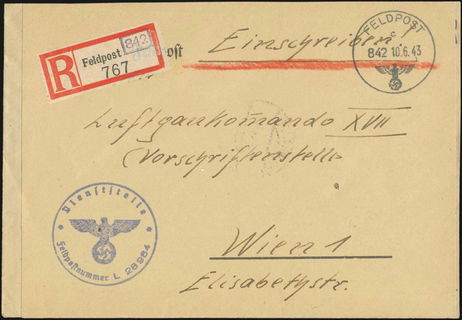 R Feldpost 842
767
Feldpost
Einschreiben
FELDPOST
c
842 10.6.43
Luftgaukommando XVII
Vorschriftenstelle
Wien 1
Elisabethstr.
Dienststelle
Feldpostnummer L 28984